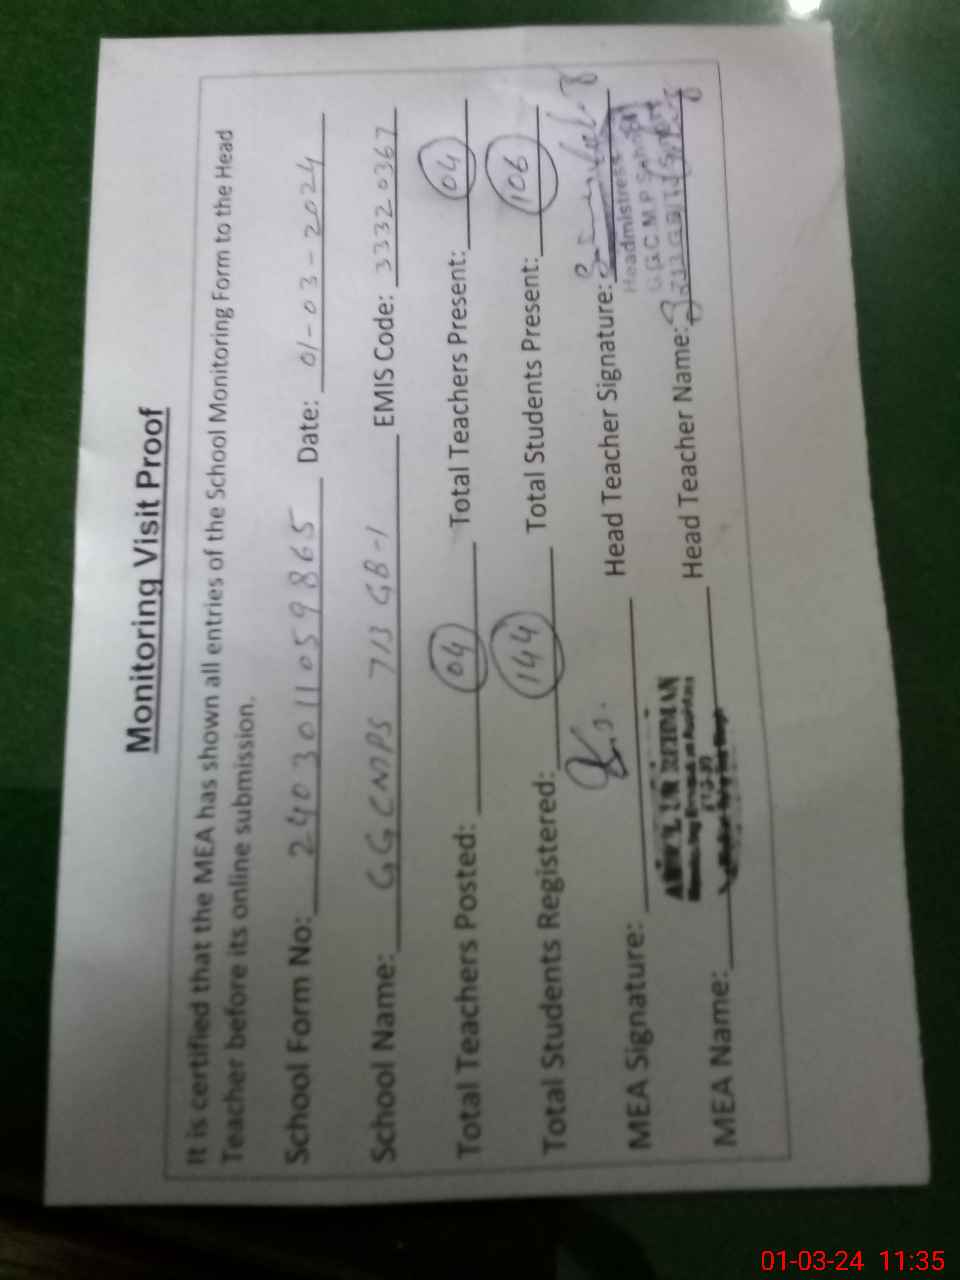 Monitoring Visit Proof
It is certified that the MEA has shown all entries of the School Monitoring Form to the Head
Teacher before its online submission.
School Form No: 240301105 9865 Date: 01-03-2024
School Name: GGCMPS 713 GB-1 EMIS Code: 33320367
Total Teachers Posted: 04 Total Teachers Present: 04
Total Students Registered: 144 Total Students Present: 106
MEA Signature: Head Teacher Signature:
Headmistress
G.G.C.M.P School
713 GB
MEA Name: Head Teacher Name:
01-03-24 11:35